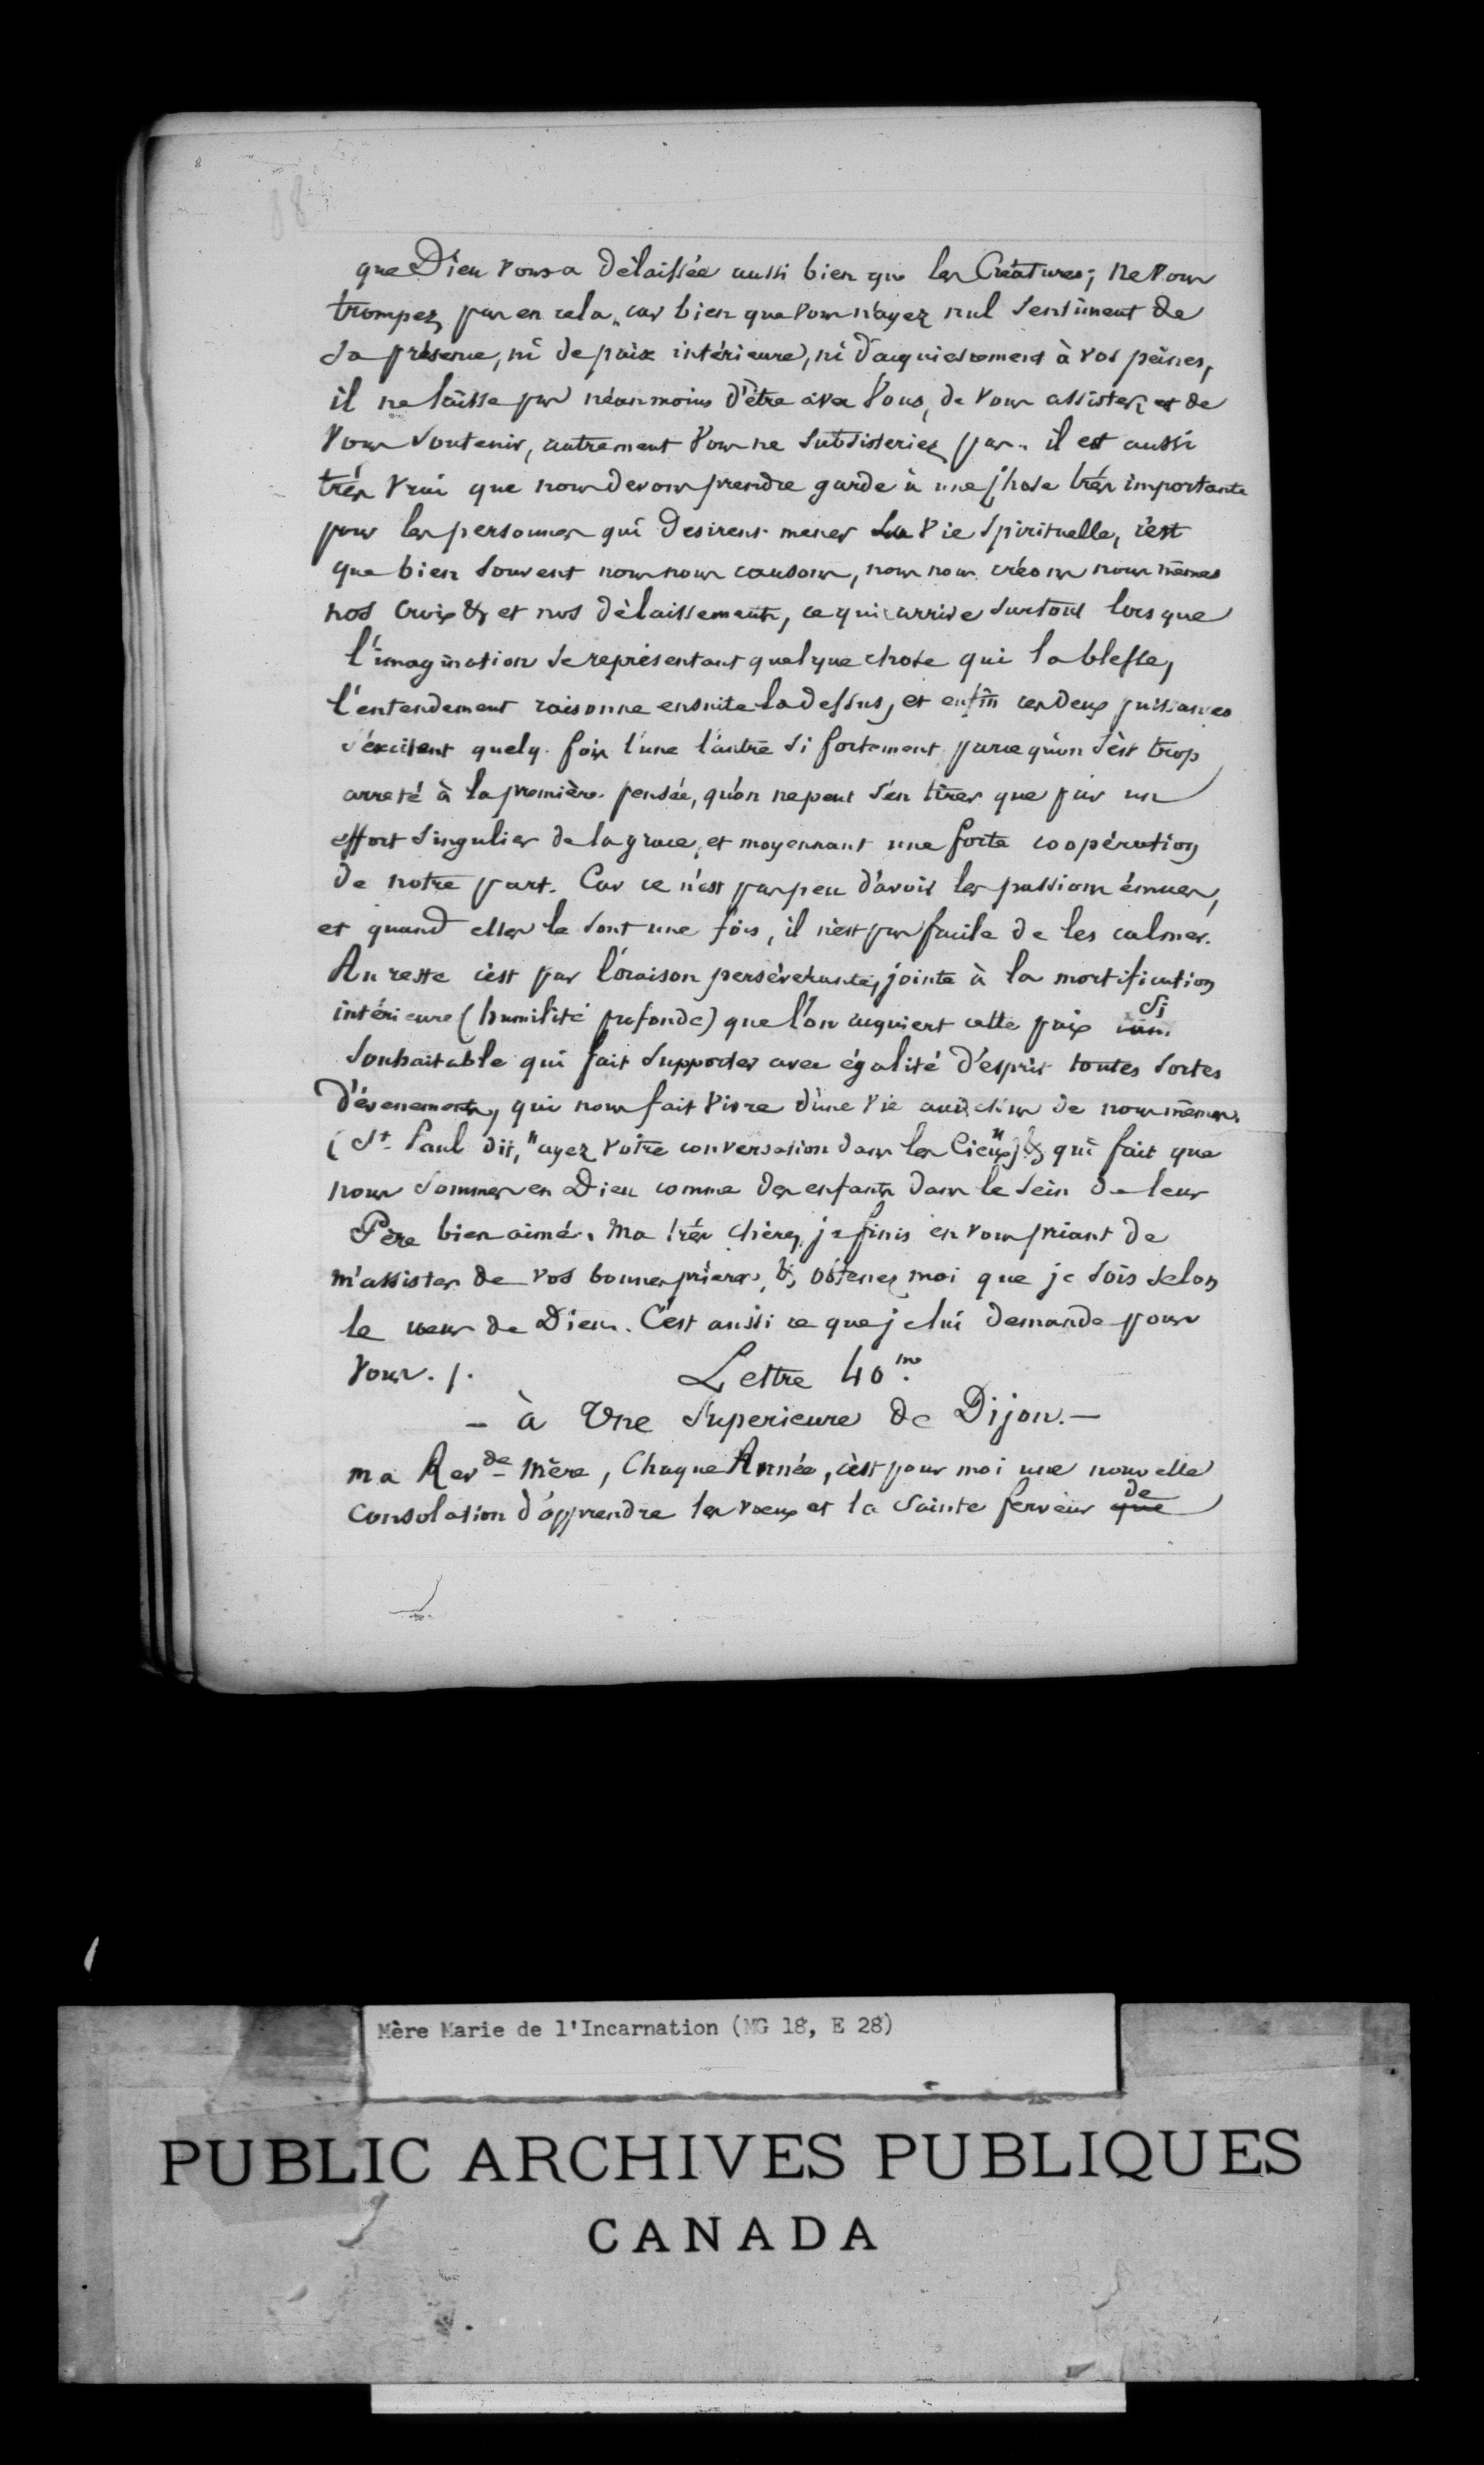 88
que Dieu vous a délaissée aussi bien que les Créatures; ne vous
trompez pas en cela, car bien que vous n'ayez nul sentiment de
sa présence, ni de paix intérieure, ni d'acquiescement à vos peines,
il ne laisse pas néanmoins d'être avec vous, de vous assister, et de
vous soutenir, autrement vous ne subsisteriez pas. il est aussi
très vrai que nous devons prendre garde à une chose très importante
pour les personnes qui desirent mener la vie Spirituelle, c'est
que bien souvent nous nous causons, nous nous créons nous mêmes
nos croix & et nos délaissements, ce qui arrive surtout lorsque
l'imagination se représentant quelque chose qui la blesse,
l'entendement raisonne ensuite la dessus, et enfin ces deux puissances
s'excitent quelq. fois l'une l'autre si fortement parce qu'on s'est trop
arreté à la première pensée, qu'on ne peut s'en tirer que par un
effort singulier de la grace, et moyennant une forte coopération
de notre part. Car ce n'est pas peu d'avoir les passions émues,
et quand elles le sont une fois, il n'est pas facile de les calmer.
Au reste c'est par l'oraison persévérante, jointe à la mortification
intérieure (humilité profonde) que l'on acquiert cette paix si
souhaitable qui fait supporter avec égalité d'esprit toutes sortes
d'évenements, qui nous fait vivre d'une vie au dessus de nous mêmes.
(St. Paul dit, "ayez votre conversation dans les Cieux") & qui fait que
nous sommes en Dieu comme des enfants dans le sein de leur
Père bien aimé. Ma très chère, je finis en vous priant de
m'assister de vos bonnes prières, & obtenez moi que je sois selon
le cœur de Dieu. C'est aussi ce que je lui demande pour
vous. /. Lettre 40me.
- à Une Superieure de Dijon. -
ma Revde Mère, Chaque Année, c'est pour moi une nouvelle
consolation d'apprendre les vœux et la Sainte ferveur que de
Mère Marie de l'Incarnation (MG 18, E 28)
PUBLIC ARCHIVES PUBLIQUES
CANADA